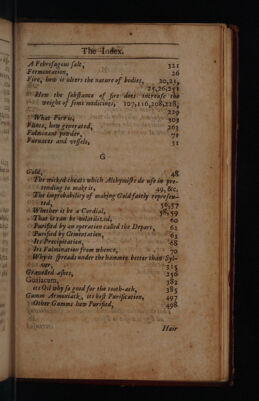 The Index.
A Febrefugous salt, 321
Fermentation, 26
Fire, how it alters the nature of bodies, 20,21,
25,26,251
How the substance of fire does increase the
weight of some medicines, 107,116,208,228,
229
What Fire is, 503
Flints, how generated, 263
Fulminant powder, 71
Furnaces and vessels, 31
G
Gold, 48
The wicked cheats which Alchymists do use in pre-
tending to make it, 49, &c.
The improbability of making Gold fairly represen-
ted, 56,57
Whether it be a Cordial, 58,59
That it can be volatilized, 60
Purified by an operation called the Depart, 62
Purified by Cementation, 63
Its Precipitation, 68
Its Fulmination from whence, 70
Why it spreads under the hammer better than Syl-
ver, 315
Gravelled ashes, 256
Guaiacum, 382
its Oil why so good for the tooth-ach, 385
Gumm Armoniack, its best Purification, 497
Other Gumms how Purified, 498
Hair